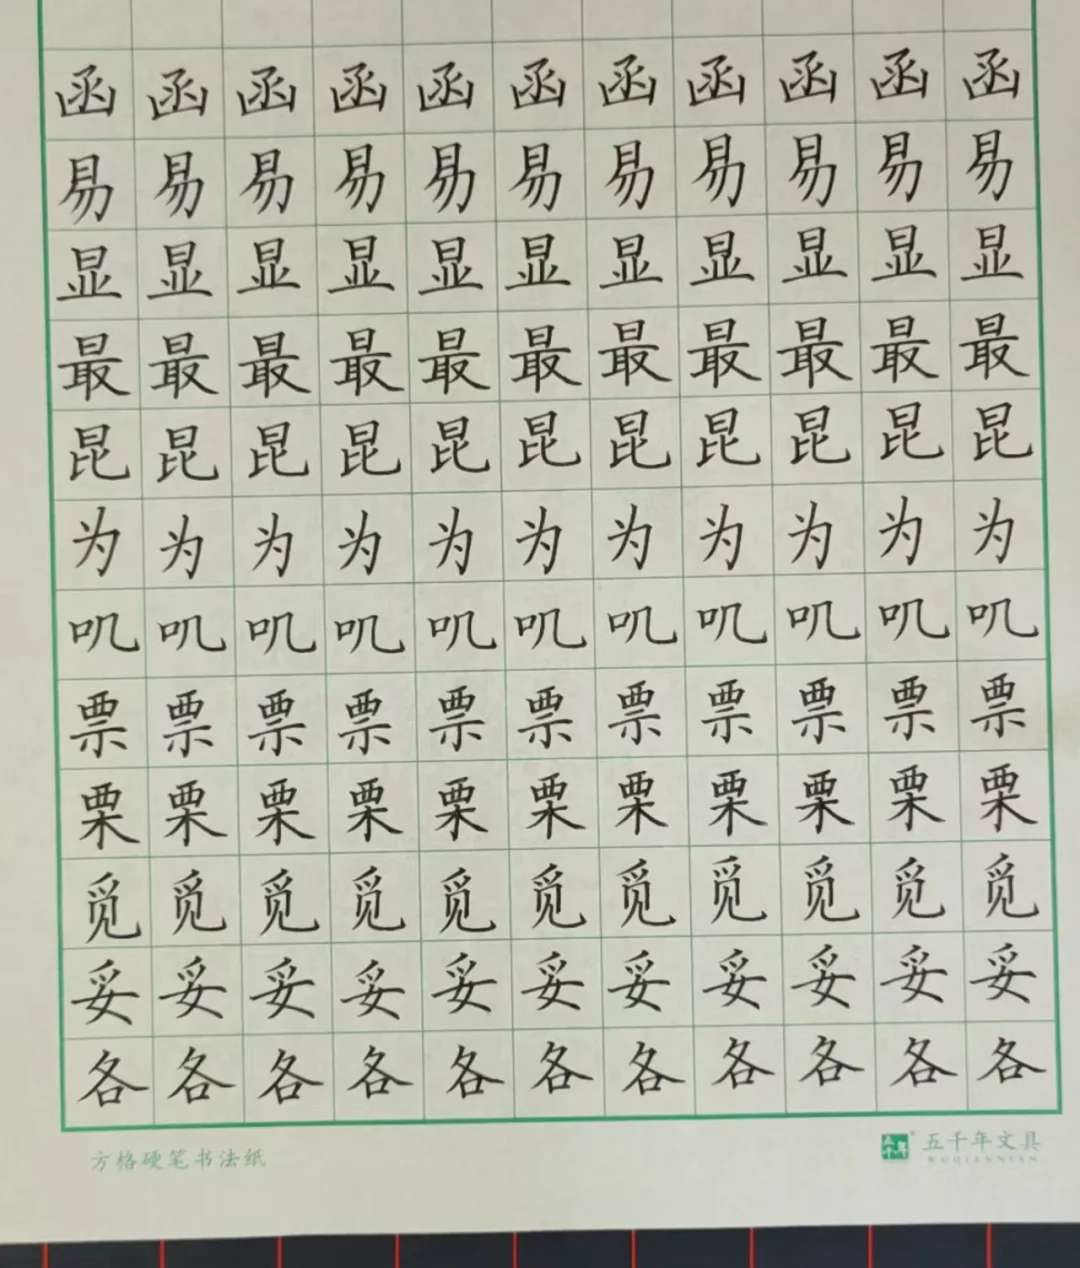 函函函函函函函函函函函
易易易易易易易易易易易
显显显显显显显显显显显
最最最最最最最最最最最
昆昆昆昆昆昆昆昆昆昆昆
为为为为为为为为为为为
叽叽叽叽叽叽叽叽叽叽叽
票票票票票票票票票票票
栗栗栗栗栗栗栗栗栗栗栗
觅觅觅觅觅觅觅觅觅觅觅
妥妥妥妥妥妥妥妥妥妥妥
各各各各各各各各各各各
方格硬笔书法纸
五千年 五千年文具
WUQIANNIAN